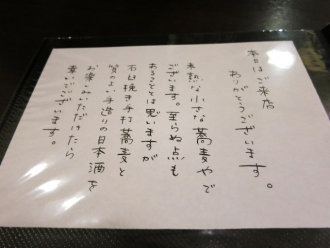 本日はご来店
ありがとうございます。
未熟な小さな蕎麦やで
ございます。至らぬ点も
あることとは思いますが
石臼挽き手打蕎麦と
質のよい手造りの日本酒を
お楽しみいただけたら
幸いでございます。